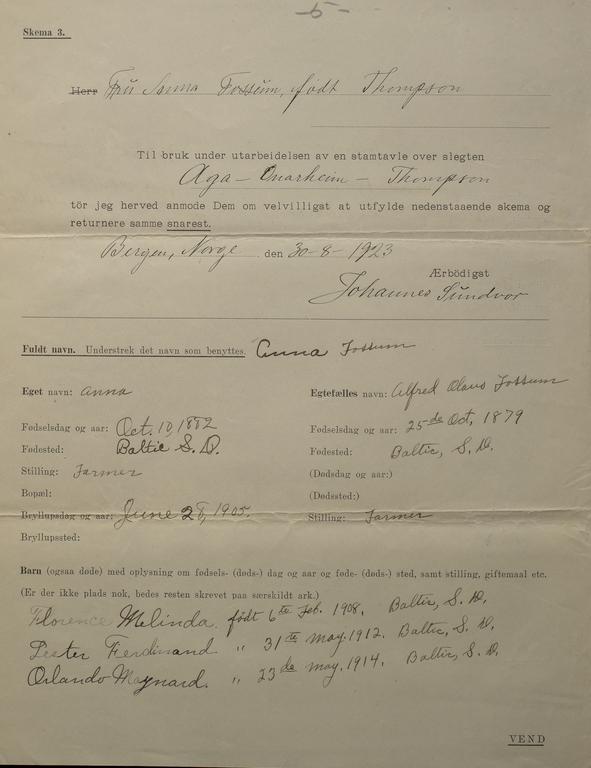 - 5 -
Skema 3.
Herr Fru Anna Fossum, født Thompson
Til bruk under utarbeidelsen av en stamtavle over slegten
Aga - Onarheim - Thompson
tör jeg herved anmode Dem om velvilligst at utfylde nedenstaaende skema og
returnere samme snarest.
Bergen, Norge den 30-8-1923
Ærbödigst
Johannes Sundvor
Fuldt navn. Understrek det navn som benyttes. Anna Fossum
Eget navn: Anna
Egtefælles navn: Alfred Olaus Fossum
Fødselsdag og aar: Oct. 10, 1882
Fødselsdag og aar: 25de Oct, 1879
Fødested: Baltic S. D.
Fødested: Baltic, S. D.
Stilling: Farmer
(Dødsdag og aar:)
Bopæl:
(Dødssted:)
Bryllupsdag og aar: June 28, 1905.
Stilling: Farmer
Bryllupssted:
Barn (ogsaa døde) med oplysning om fødsels- (døds-) dag og aar og føde- (døds-) sted, samt stilling, giftemaal etc.
(Er der ikke plads nok, bedes resten skrevet paa særskildt ark.)
Florence Melinda. født 6te Feb. 1908, Baltic, S. D.
Lester Ferdinand " 31te May. 1912. Baltic, S. D.
Orlando Maynard. " 23de may. 1914, Baltic, S. D.
VEND